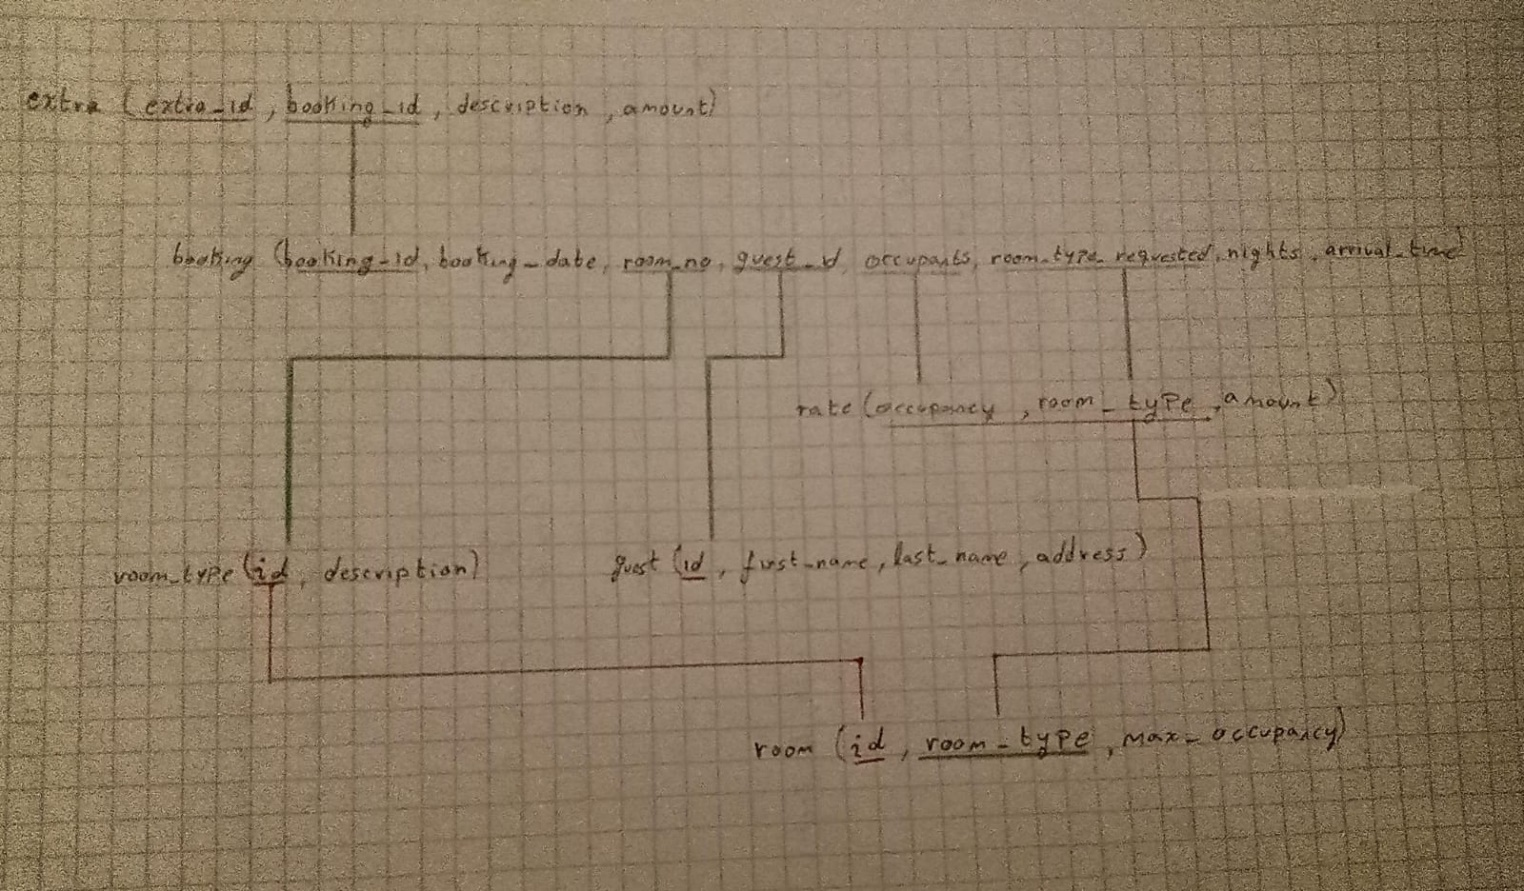 extra (extra_id, booking_id, description, amount)
booking (booking_id, booking_date, room_no, guest_id, occupants, room_type_requested, nights, arrival_time)
rate (occupancy, room_type, amount)
room_type (id, description)
guest (id, first_name, last_name, address)
room (id, room_type, max_occupancy)